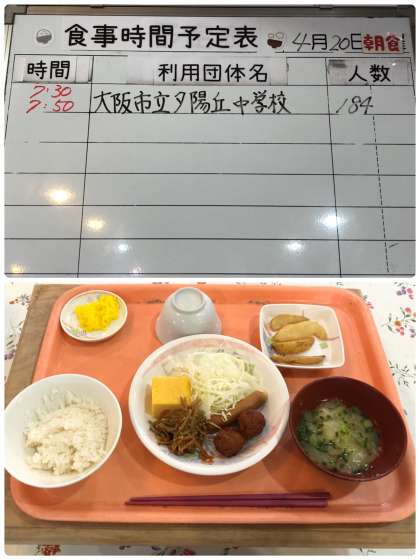 食事時間予定表 4月20日 朝食
時間 利用団体名 人数
7:30
7:50 大阪市立夕陽丘中学校 184